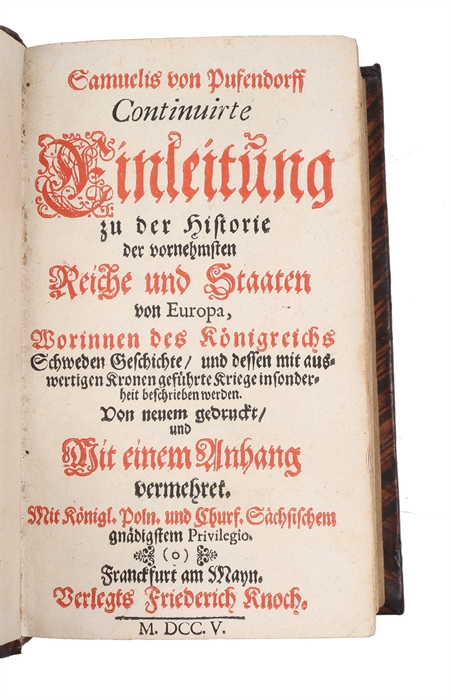 Samuelis von Pufendorff
Continuirte
Einleitung
zu der Historie
der vornehmsten
Reiche und Staaten
von Europa,
Worinnen des Königreichs
Schweden Geschichte/ und dessen mit aus-
wertigen Kronen geführte Kriege insonder-
heit beschrieben werden.
Von neuem gedruckt/
und
Mit einem Anhang
vermehret.
Mit Königl. Poln. und Churf. Sächsischem
gnädigstem Privilegio.
(o)
Franckfurt am Mayn.
Verlegts Friederich Knoch.
M. DCC. V.